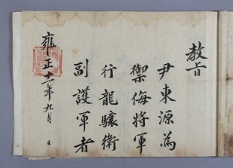 教旨
尹東源為
禦侮將軍
行龍驤衛
副護軍者
雍正十一年九月 日